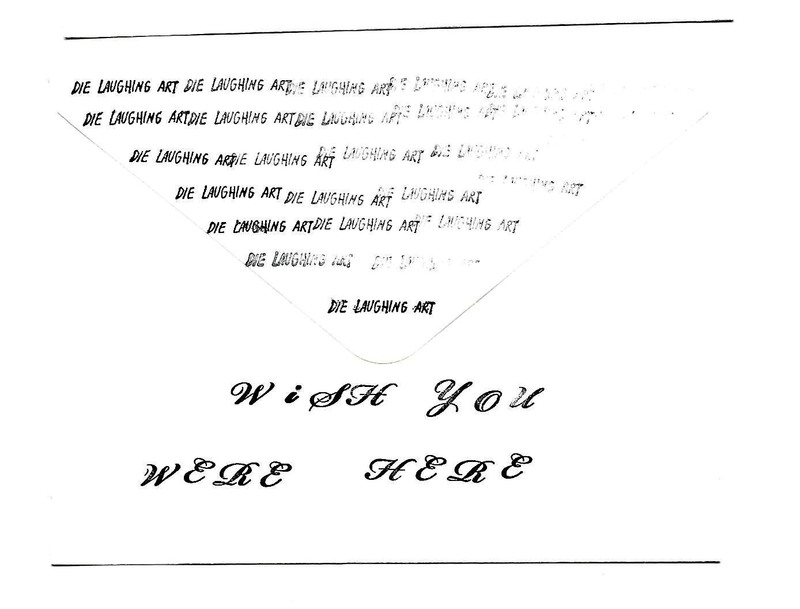 DIE LAUGHING ART DIE LAUGHING ART DIE LAUGHING ART DIE LAUGHING ART DIE LAUGHING ART
DIE LAUGHING ART DIE LAUGHING ART DIE LAUGHING ART DIE LAUGHING ART LAUGHING ART
DIE LAUGHING ART DIE LAUGHING ART DIE LAUGHING ART DIE LAUGHING ART
DIE LAUGHING ART
DIE LAUGHING ART DIE LAUGHING ART DIE LAUGHING ART
DIE LAUGHING ART DIE LAUGHING ART DIE LAUGHING ART
DIE LAUGHING ART DIE LAUGHING
DIE LAUGHING ART
WiSH YOU
WERE HERE